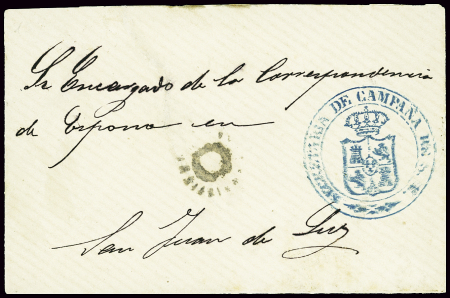 Sr Encargado de la Correspondencia
de España en
San Juan de Luz
SECRETARIA DE CAMPAÑA DE S. E.